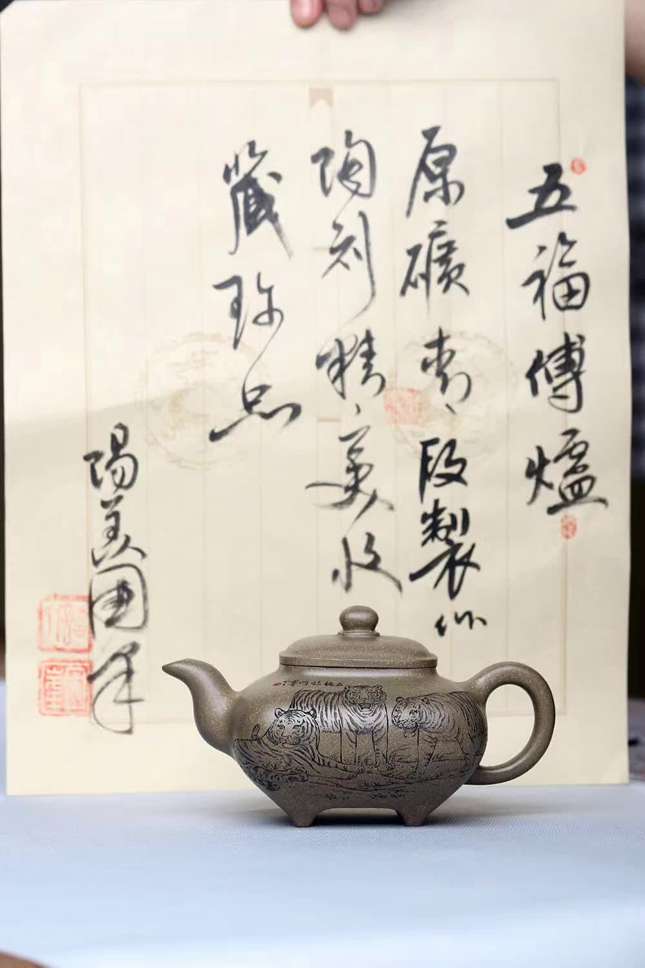 五福傅爐
原礦青段製作
陶刻精美收
藏珍品
陽羨國羊